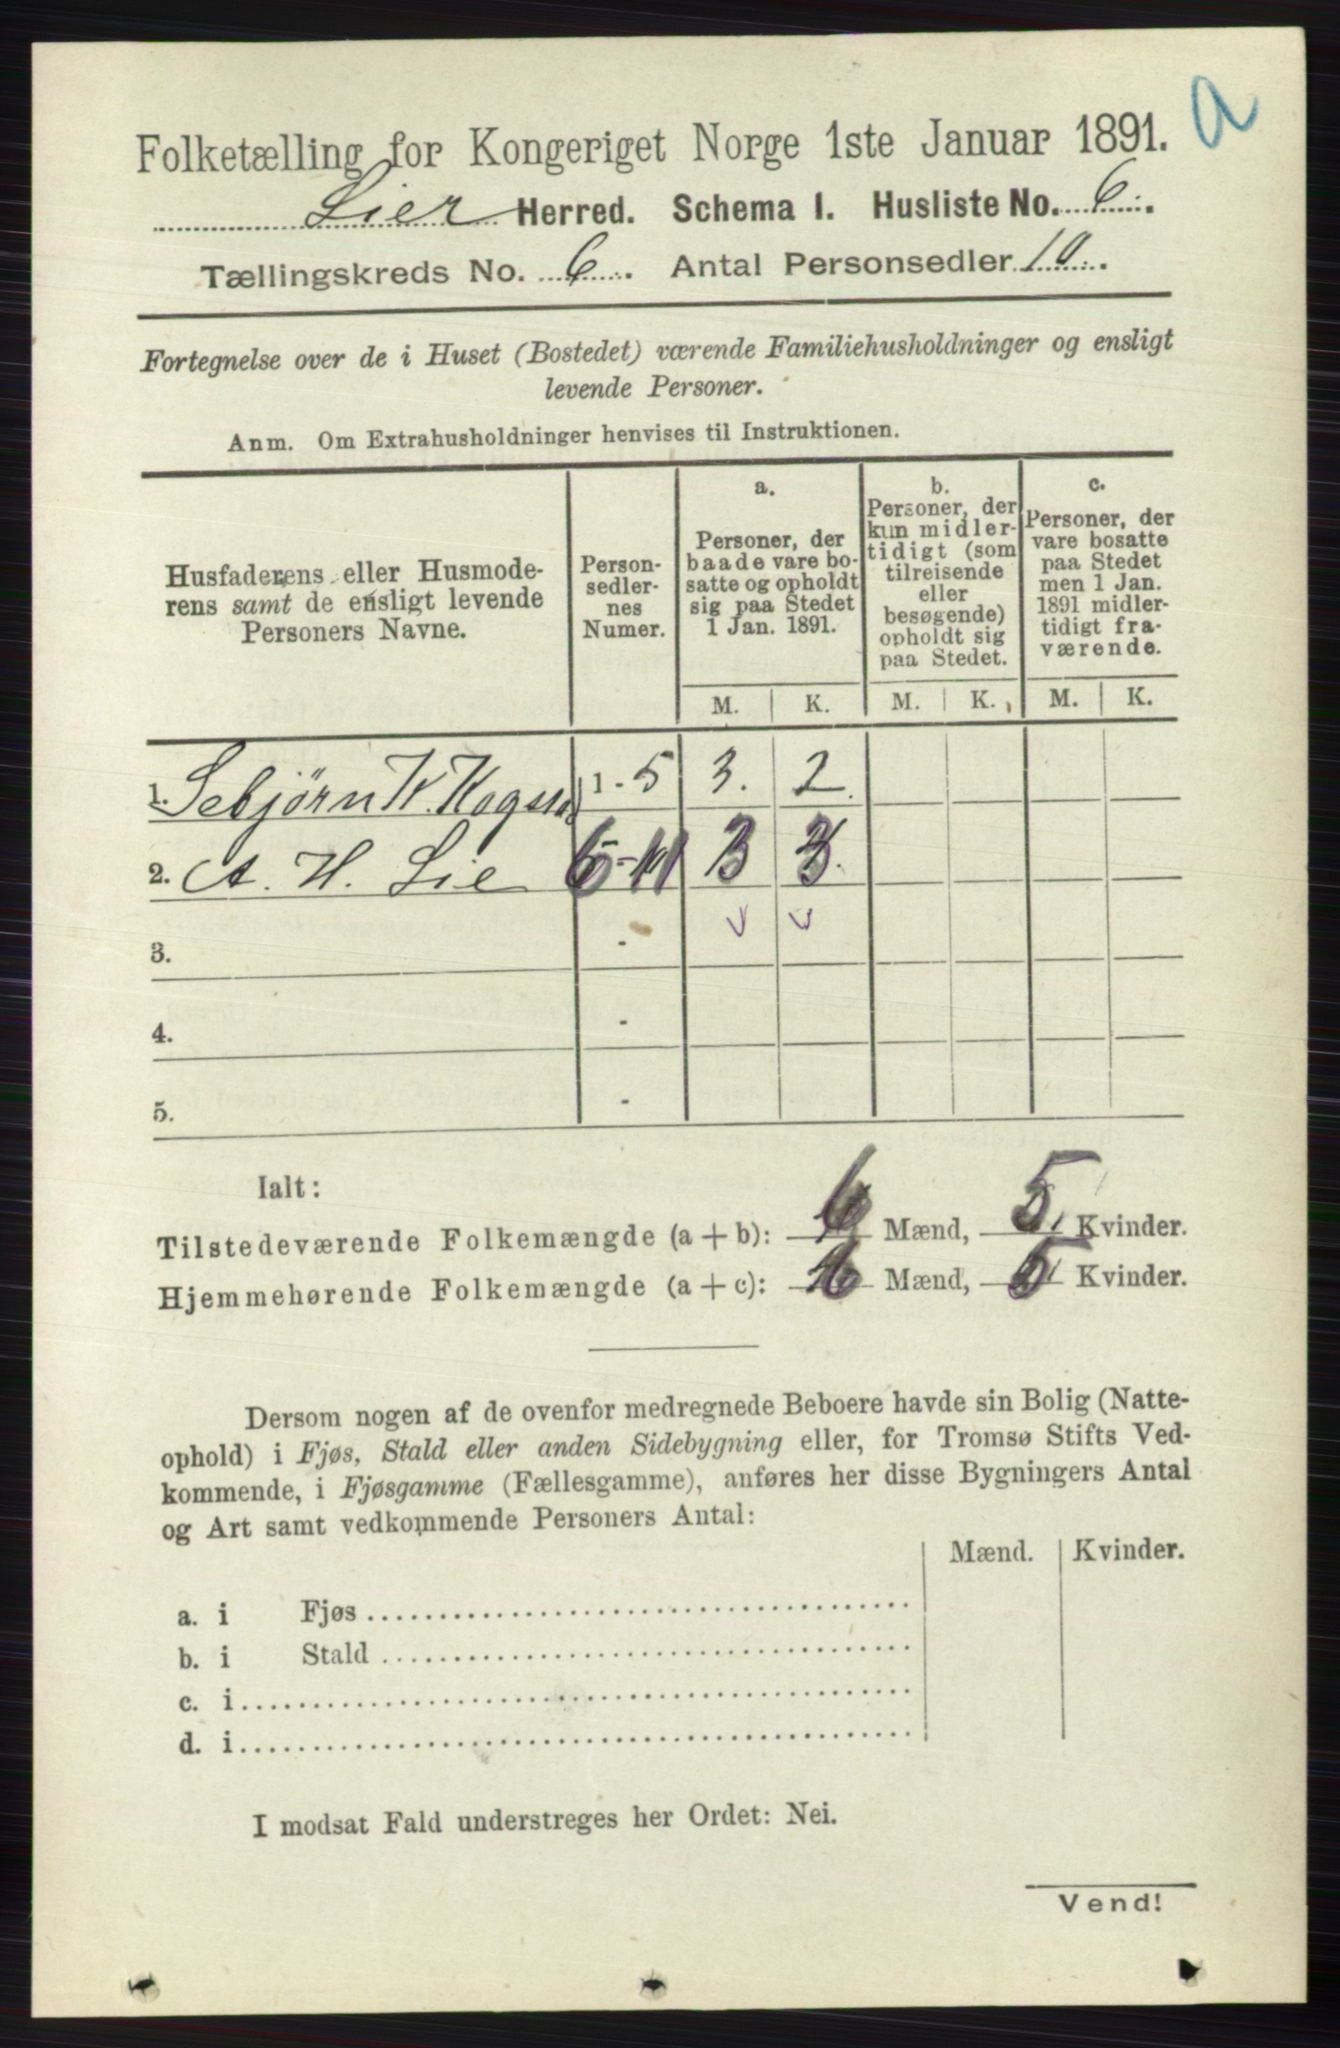 a
Folketælling for Kongeriget Norge 1ste Januar 1891.
Lier Herred. Schema I. Husliste No. 6.
Tællingskreds No. 6. Antal Personsedler 10.
Fortegnelse over de i Huset (Bostedet) værende Familiehusholdninger og ensligt
levende Personer.
Anm. Om Extrahusholdninger henvises til Instruktionen.
Husfaderens eller Husmode-
rens samt de ensligt levende
Personers Navne.
Person-
sedler-
nes
Numer.
a.
Personer, der
baade vare bo-
satte og opholdt
sig paa Stedet
1 Jan. 1891.
b.
Personer, der
kun midler-
tidigt (som
tilreisende
eller
besøgende)
opholdt sig
paa Stedet.
c.
Personer, der
vare bosatte
paa Stedet
men 1 Jan.
1891 midler-
tidigt fra-
værende.
M. K. M. K. M. K.
1. Sebjørn K. 1 - 5 3. 2.
2. A. H. Lie 6-11 3 3.
3. -
4. -
5. -
Ialt:
Tilstedeværende Folkemængde (a + b): 6 Mænd, 5 Kvinder.
Hjemmehørende Folkemængde (a + c): 6 Mænd, 5 Kvinder.
Dersom nogen af de ovenfor medregnede Beboere havde sin Bolig (Natte-
ophold) i Fjøs, Stald eller anden Sidebygning eller, for Tromsø Stifts Ved-
kommende, i Fjøsgamme (Fællesgamme), anføres her disse Bygningers Antal
og Art samt vedkommende Personers Antal:
Mænd. Kvinder.
a. i Fjøs
b. i Stald
c. i
d. i
I modsat Fald understreges her Ordet: Nei.
Vend!